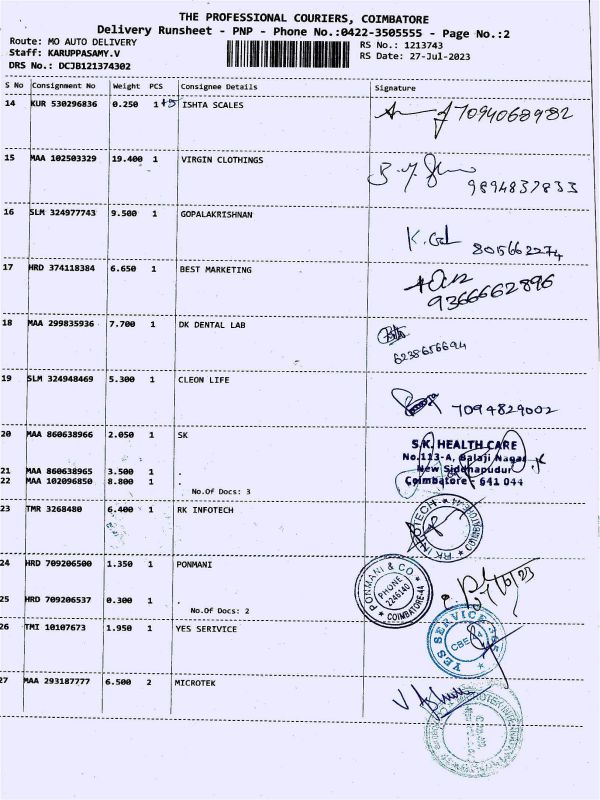 THE PROFESSIONAL COURIERS, COIMBATORE
Delivery Runsheet - PNP - Phone No.:0422-3505555 - Page No.:2
Route: MO AUTO DELIVERY
RS No.: 1213743
Staff: KARUPPASAMY.V
RS Date: 27-Jul-2023
DRS No.: DCJB121374302
S No Consignment No Weight PCS Consignee Details Signature
14 KUR 530296836 0.250 1 +5 ISHTA SCALES 7094068982
15 MAA 102503329 19.400 1 VIRGIN CLOTHINGS
9894837833
16 SLM 324977743 9.500 1 GOPALAKRISHNAN
K. Gol 805662274
17 HRD 374118384 6.650 1 BEST MARKETING
9366662896
18 MAA 299835936 7.700 1 DK DENTAL LAB
6238656694
19 SLM 324948469 5.300 1 CLEON LIFE
7094829002
20 MAA 860638966 2.050 1 SK
S.K. HEALTH CARE
No.113-A, Balaji Nagar
New Siddhapudur
Coimbatore - 641 044
21 MAA 860638965 3.500 1 .
22 MAA 102096850 8.800 1 .
No.Of Docs: 3
23 TMR 3268480 6.400 1 RK INFOTECH
RK INFOTECH
24 HRD 709206500 1.350 1 PONMANI
PONMANI & CO
PHONE
2246140
COIMBATORE-44
25 HRD 709206537 0.300 1 .
No.Of Docs: 2
26 TMI 10107673 1.950 1 YES SERIVICE
YES SERVICE
CBE
27 MAA 293187777 6.500 2 MICROTEK